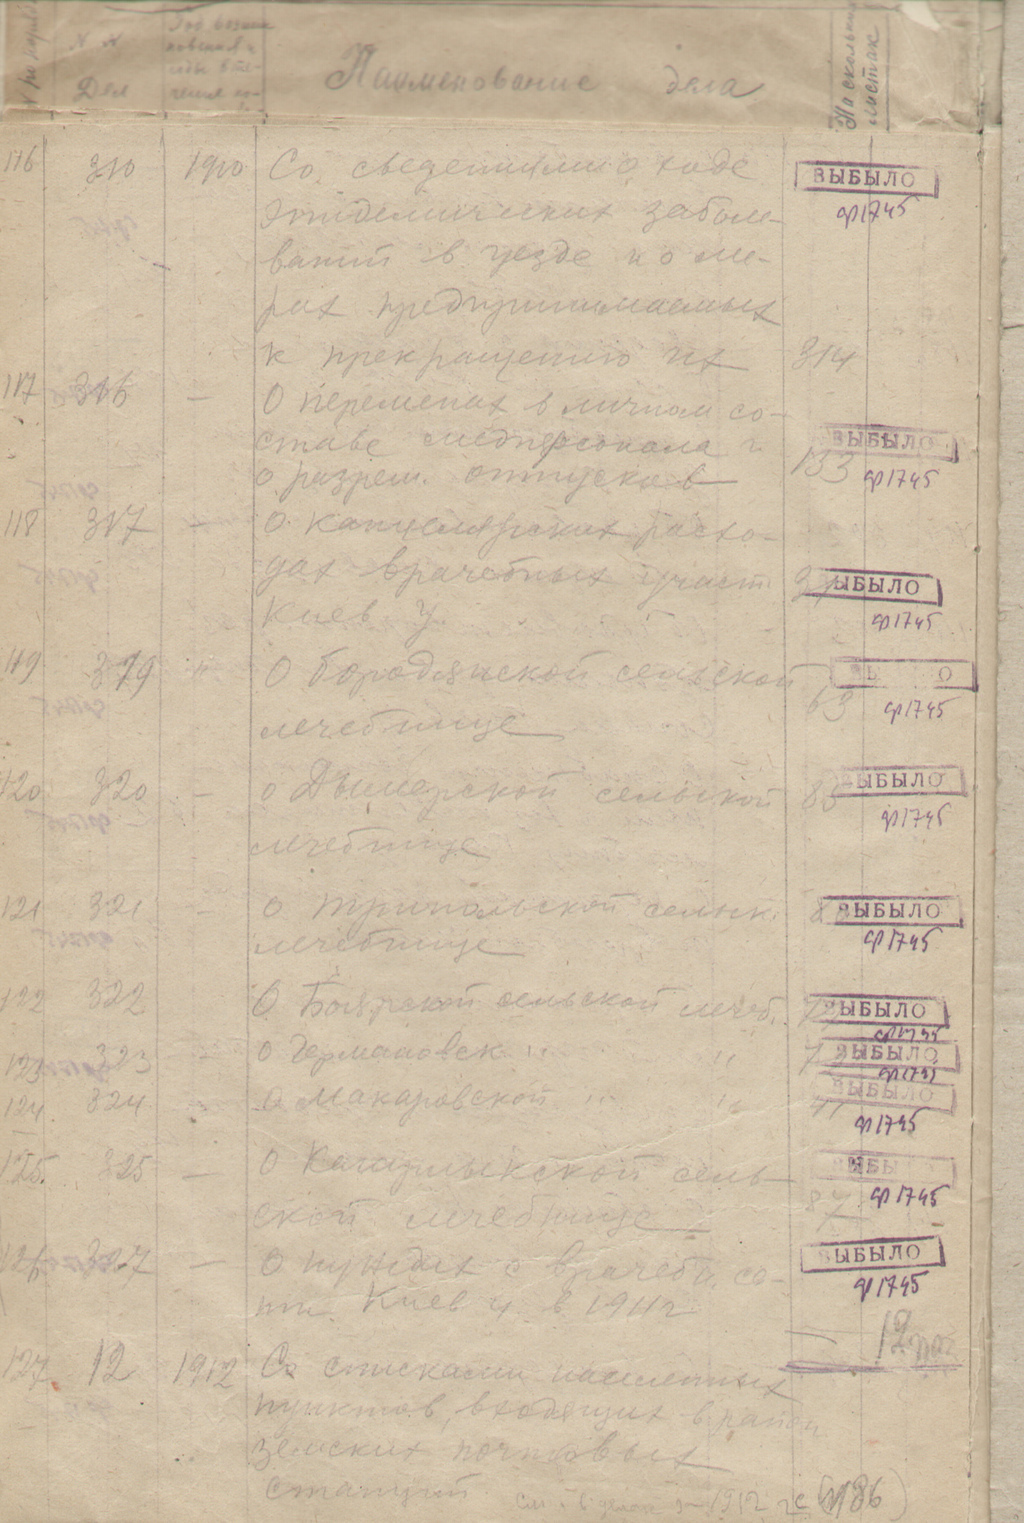 № по поряд.
№ №
Дел
Год возник
новения и
Наименование дела
На скольких
листах
116 310 1910 Со сведениями о ходе ВЫБЫЛО
эпидемических заболе- ф1745
ваний в уезде и о ме-
рах предпринимаемых
к прекращению их 314
117 316 — О переменах в личном со-
ставе медперсонала и 133 ВЫБЫЛО
о разреш. отпусков ф1745
118 317 — О канцелярских расхо-
дах врачебных участ. ВЫБЫЛО
Киев у. ф1745
119 319 " О Бородянской сельской
лечебнице 63 ф1745
120 320 О Дымерской сельской ВЫБЫЛО
лечебнице ф1745
121 321 — О Трипольской сельск. ВЫБЫЛО
лечебнице ф1745
122 322 О Боярской сельской лечеб. ВЫБЫЛО
ф1745
123 323 О Германовск. " " ВЫБЫЛО
ф1745
124 324 О Макаровской " " ВЫБЫЛО
ф1745
125. 325 — О Кагарлыкской сель-
ской лечебнице ф1745
126 327 — О нуждах с врачебн. со- ВЫБЫЛО
Киев у. в 1911 г. ф1745
12
127 12 1912 Со списками населенных
пунктов, входящих в район
земских почтовых
станций
1912 (186)